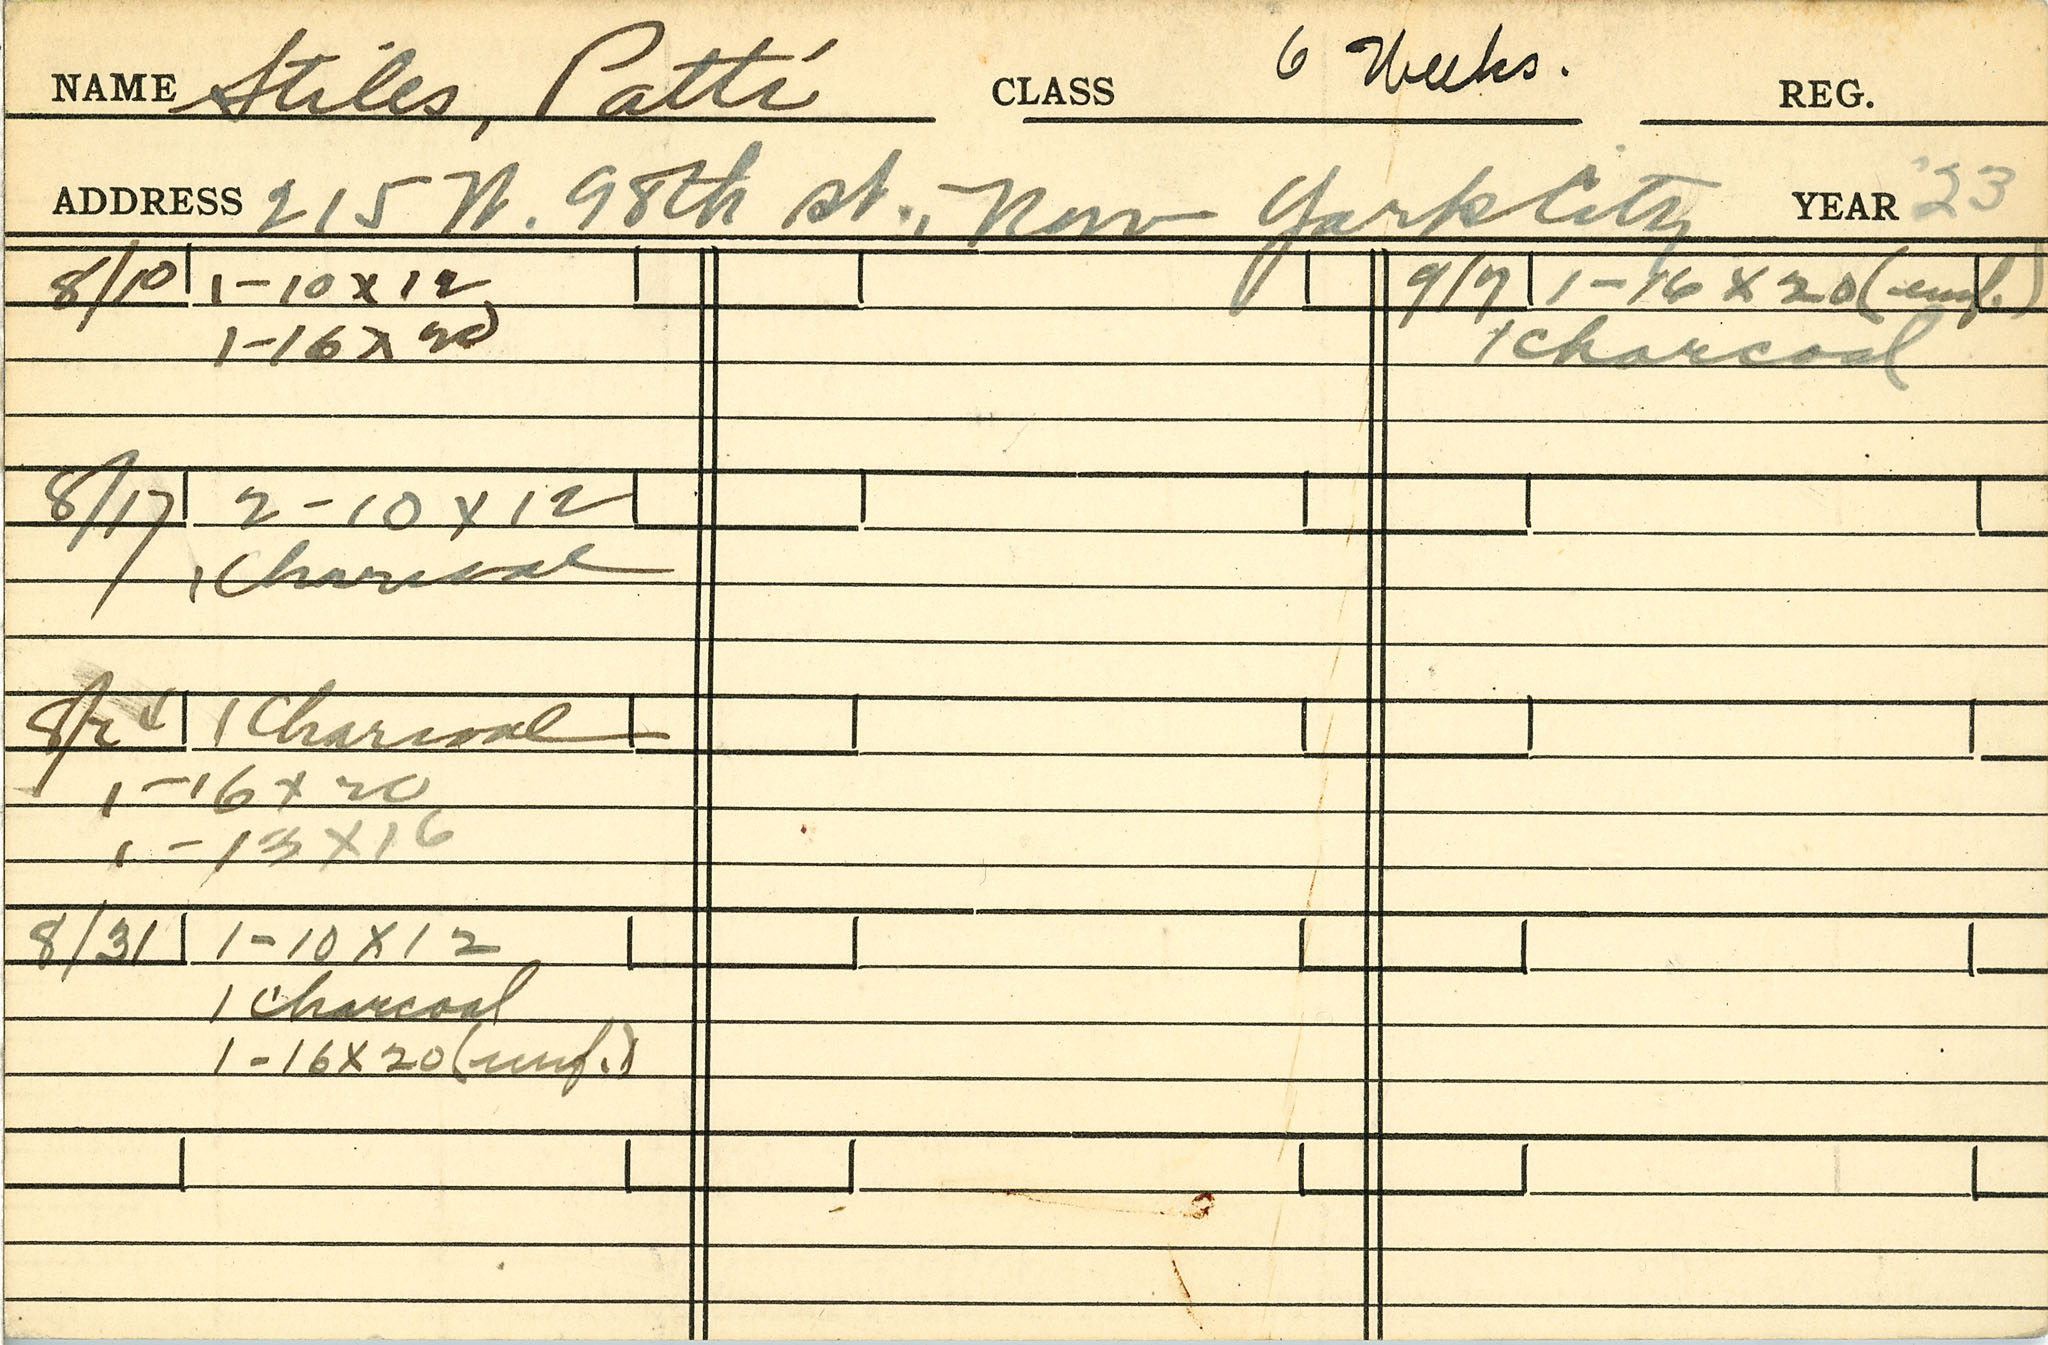 NAME Stiles, Patti CLASS 6 Weeks. REG.
ADDRESS 215 W. 98th St., New York City YEAR '23
8/10 1-10 x 12
1-16 x 20
8/17 2-10 x 12
1 Charcoal
8/24 1 Charcoal
1-16 x 20
1-13 x 16
8/31 1-10 x 12
1 Charcoal
1-16 x 20 (unf.)
9/7 1-16 x 20 (unf.)
1 Charcoal